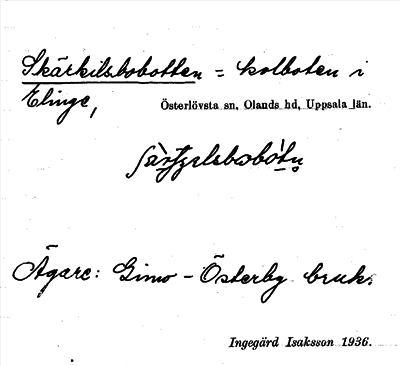 Skärkilsbobotten = kolboten i
Elinge, Österlövsta sn, Olands hd, Uppsala län.
Ägare: Gimo-Österby bruk.
Ingegärd Isaksson 1936.